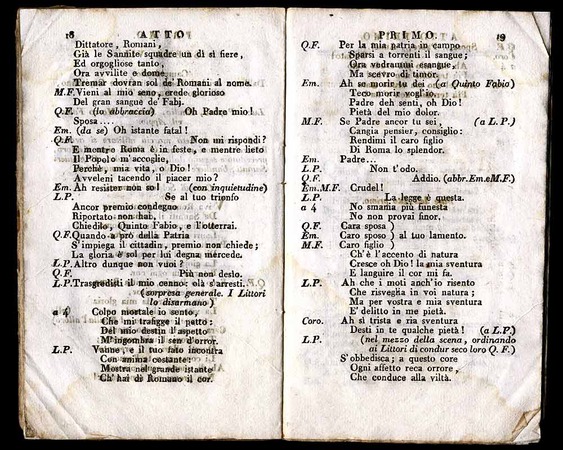 18 ATTO
Dittatore, Romani,
Già le Sannite squadre un dì sì fiere,
Ed orgogliose tanto,
Ora avvilite e dome,
Tremar dovran sol de' Romani al nome.
M.F. Vieni al mio seno, erede glorioso
Del gran sangue de' Fabj.
Q.F. (lo abbraccia) Oh Padre mio!
Sposa....
Em. (da se) Oh istante fatal!
Q.F. Non mi rispondi?
E mentre Roma è in feste, e mentre lieto
Il Popolo m'accoglie,
Perchè, mia vita, o Dio!
Avveleni tacendo il piacer mio?
Em. Ah resister non so! (con inquietudine)
L.P. Se al tuo trionfo
Ancor premio condegno
Riportato non hai,
Chiedilo, Quinto Fabio, e l'otterrai.
Q.F. Quando a prò della Patria
S'impiega il cittadin, premio non chiede;
La gloria è sol per lui degna mercede.
L.P. Altro dunque non vuoi?
Q.F. Più non desìo.
L.P. Trasgredisti il mio cenno: olà s'arresti.
(sorpresa generale. I Littori
lo disarmano)
a 4 Colpo mortale io sento,
Che mi trafigge il petto:
Del mio destin l'aspetto
M'ingombra il sen d'orror.
L.P. Vanne, e il tuo fato incontra
Con anima costante:
Mostra nel grande istante
Ch' hai di Romano il cor.
PRIMO. 19
Q.F. Per la mia patria in campo
Sparsi a torrenti il sangue;
Ora vedrammi esangue,
Ma scevro di timor.
Em. Ah se morir tu dei (a Quinto Fabio)
Teco morir vogl'io.
Padre deh senti, oh Dio!
Pietà del mio dolor.
M.F. Se Padre ancor tu sei, (a L.P.)
Cangia pensier, consiglio:
Rendimi il caro figlio
Di Roma lo splendor.
Em. Padre...
L.P. Non t'odo.
Q.F. Addio. (abbr.Em.eM.F.)
Em.M.F. Crudel!
L.P. La legge è questa.
a 4 No smania più funesta
No non provai finor.
Q.F. Cara sposa )
Em. Caro sposo ) al tuo lamento.
M.F. Caro figlio )
Ch'è l'accento di natura
Cresce oh Dio! la mia sventura
E languire il cor mi fa.
L.P. Ah che i moti anch'io risento
Che risveglia in voi natura;
Ma per vostra e mia sventura
E' delitto in me pietà.
Coro. Ah sì trista e ria sventura
Desti in te qualche pietà! (a L.P.)
L.P. (nel mezzo della scena, ordinando
ai Littori di condur seco loro Q.F.)
S'obbedisca; a questo core
Ogni affetto reca orrore,
Che conduce alla viltà.